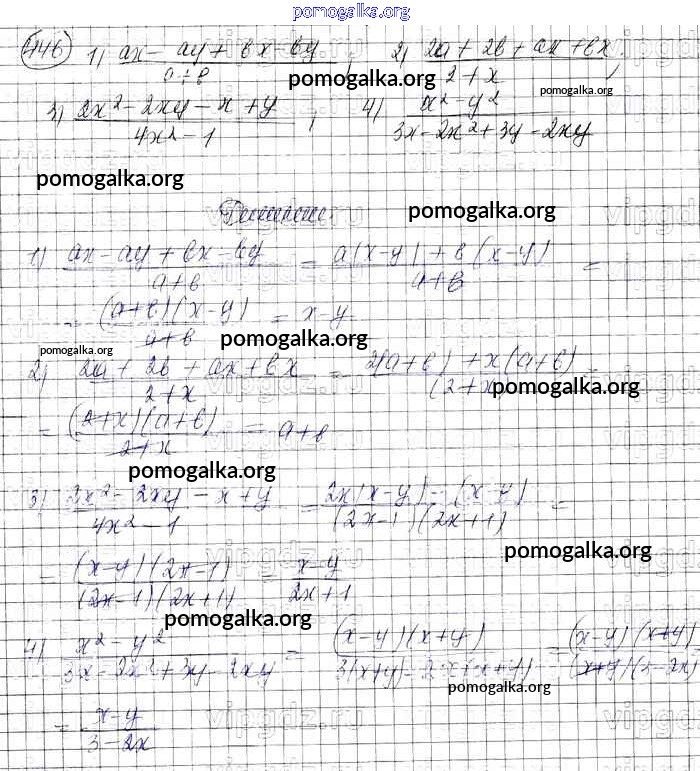 pomogalka.org
446 1) (ax - ay + bx - by)/(a + b); 2) (2a + 2b + ax + bx)/(2 + x);
pomogalka.org pomogalka.org
3) (2x² - 2xy - x + y)/(4x² - 1); 4) (x² - y²)/(3x - 2x² + 3y - 2xy)
pomogalka.org
Решение.
pomogalka.org
1) (ax - ay + bx - by)/(a + b) = (a(x - y) + b(x - y))/(a + b) =
= ((a + b)(x - y))/(a + b) = x - y
pomogalka.org
pomogalka.org
2) (2a + 2b + ax + bx)/(2 + x) = (2(a + b) + x(a + b))/(2 + x =
pomogalka.org
= ((2 + x)(a + b))/(2 + x) = a + b
pomogalka.org
3) (2x² - 2xy - x + y)/(4x² - 1) = (2x(x - y) - (x - y))/((2x - 1)(2x + 1)) =
pomogalka.org
= ((x - y)(2x - 1))/((2x - 1)(2x + 1)) = (x - y)/(2x + 1)
pomogalka.org
4) (x² - y²)/(3x - 2x² + 3y - 2xy) = ((x - y)(x + y))/(3(x + y) - 2x(x + y)) = ((x - y)(x + y))/((x + y)(3 - 2x)
pomogalka.org
= (x - y)/(3 - 2x)